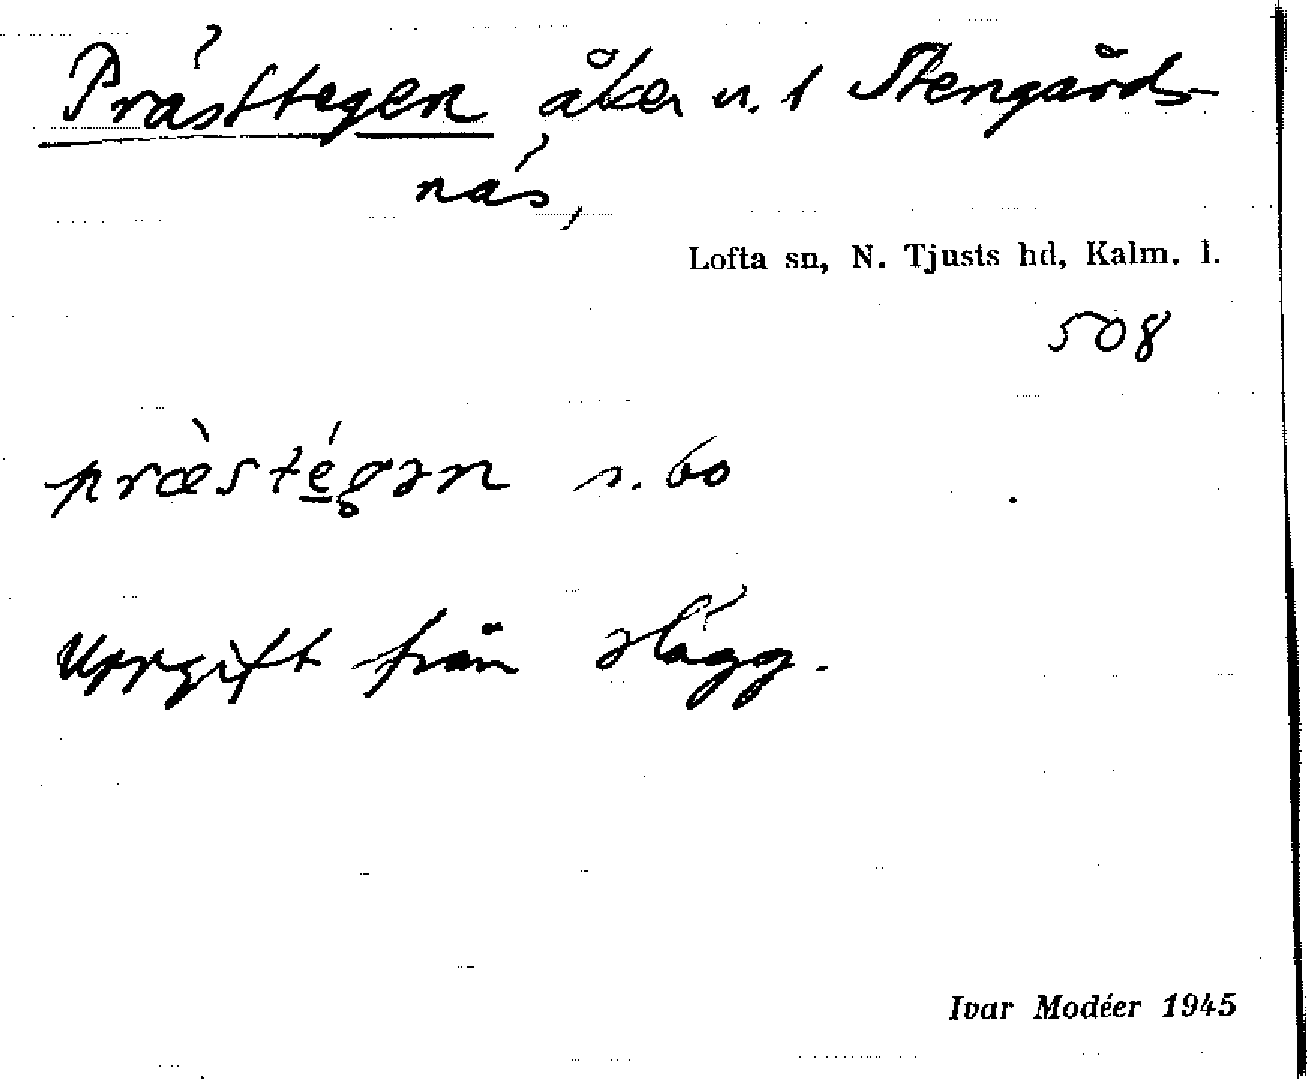 Prästtegen åker n. 1 Stengårds-
näs,
Lofta sn, N. Tjusts hd, Kalm. l.
508
præ̀stégən s. bo
Uppgift från slägg.
Ivar Modéer 1945